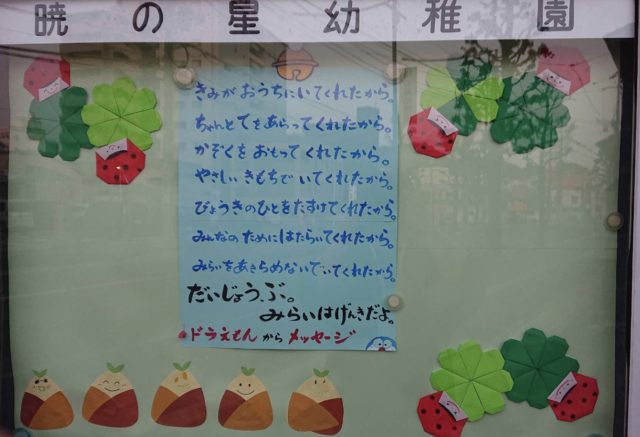 暁の星幼稚園
きみがおうちにいてくれたから。
ちゃんとてをあらってくれたから。
かぞくをおもってくれたから。
やさしいきもちでいてくれたから。
びょうきのひとをたすけてくれたから。
みんなのためにはたらいてくれたから。
みらいをあきらめないでいてくれたから。
だいじょうぶ。
みらいはげんきだよ。
ドラえもんからメッセージ